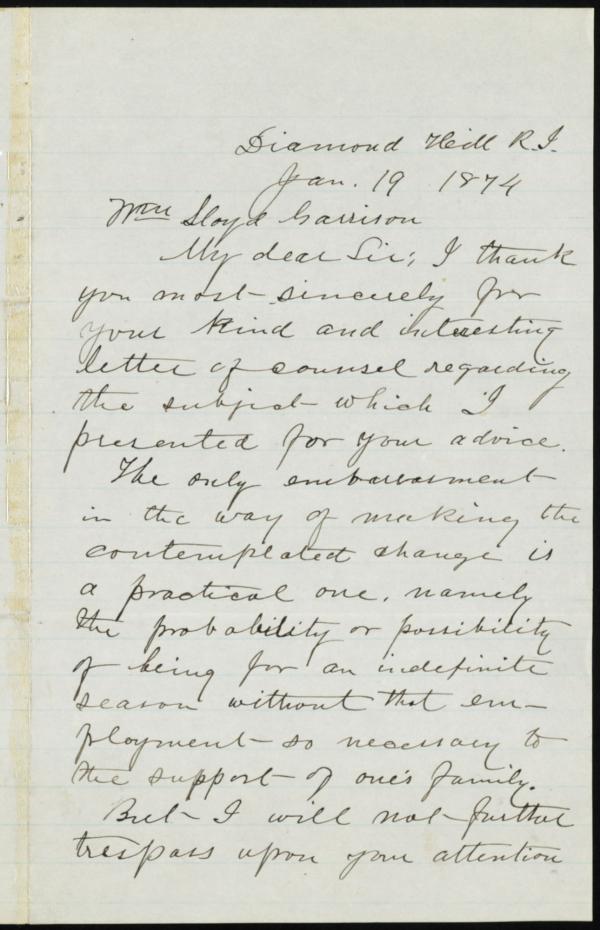 Diamond Hill R.I.
Jan. 19 1874
Wm Lloyd Garrison
My dear Sir; I thank
you most sincerely for
your kind and interesting
letter of counsel regarding
the subject which I
presented for your advice.
The only embarrassment
in the way of making the
contemplated change is
a practical one, namely
the probability or possibility
of being for an indefinite
season without that em-
ployment so necessary to
the support of one's family.
But I will not further
trespass upon your attention